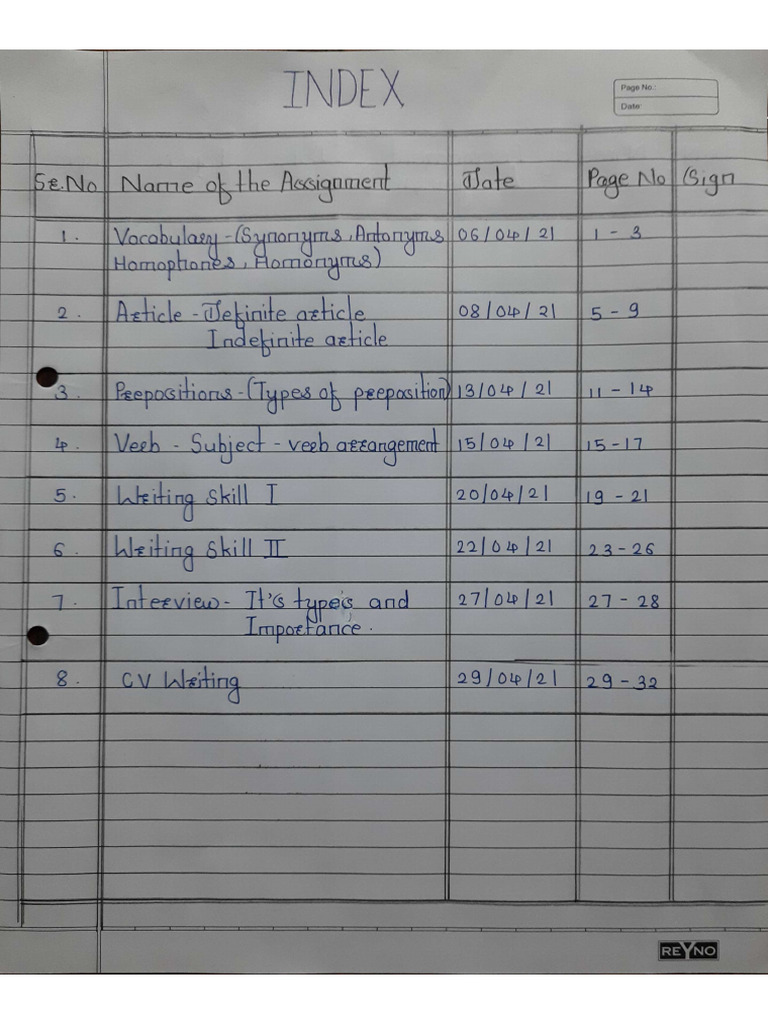 INDEX
Page No.:
Date:
Sr.No Name of the Assignment Date Page No Sign
1. Vocabulary-(Synonyms, Antonyms 06/04/21 1-3
Homophones, Homonyms)
2. Article - Definite article 08/04/21 5-9
Indefinite article
3. Prepositions-(Types of preposition) 13/04/21 11-14
4. Verb - Subject - verb arrangement 15/04/21 15-17
5. Writing Skill I 20/04/21 19-21
6. Writing Skill II 22/04/21 23-26
7. Interview- It's types and 27/04/21 27-28
Importance.
8. CV Writing 29/04/21 29-32
REYNO